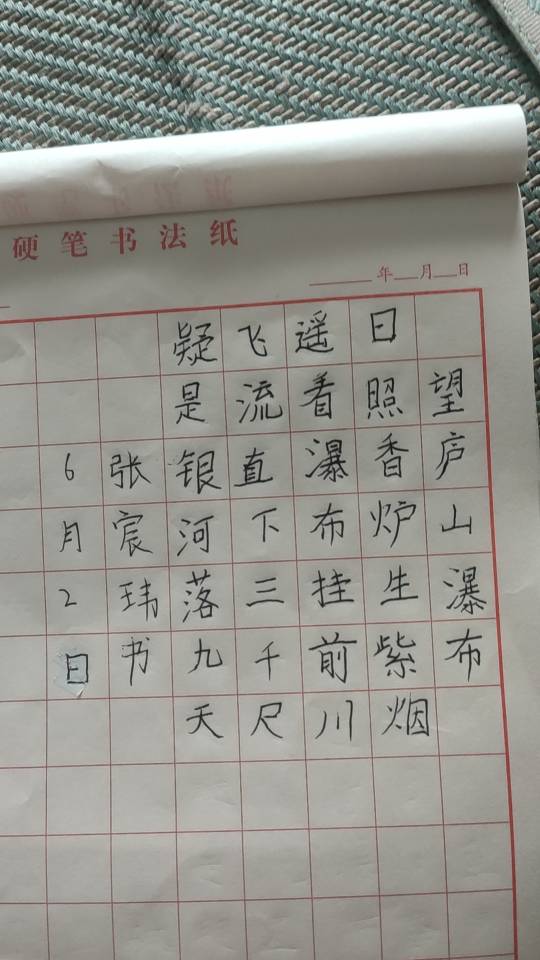 硬笔书法纸
年 月 日
望庐山瀑布
日照香炉生紫烟
遥看瀑布挂前川
飞流直下三千尺
疑是银河落九天
张宸玮书
6月2日